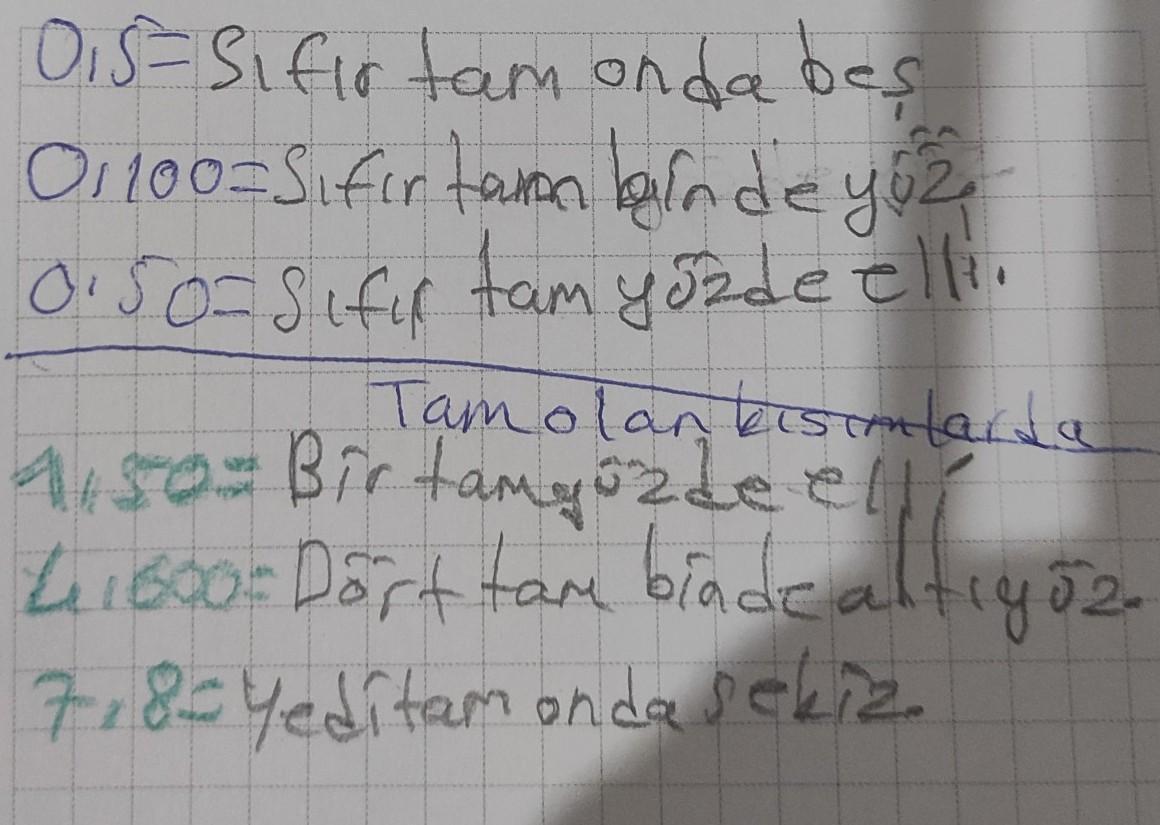 0,5=Sıfır tam onda beş
0,100=Sıfır tam binde yüz.
0,50=Sıfır tam yüzde elli.
Tam olan kısımlarda
1,50= Bir tam yüzde elli
4,600= Dört tam binde altıyüz.
7,8= Yedi tam onda sekiz.